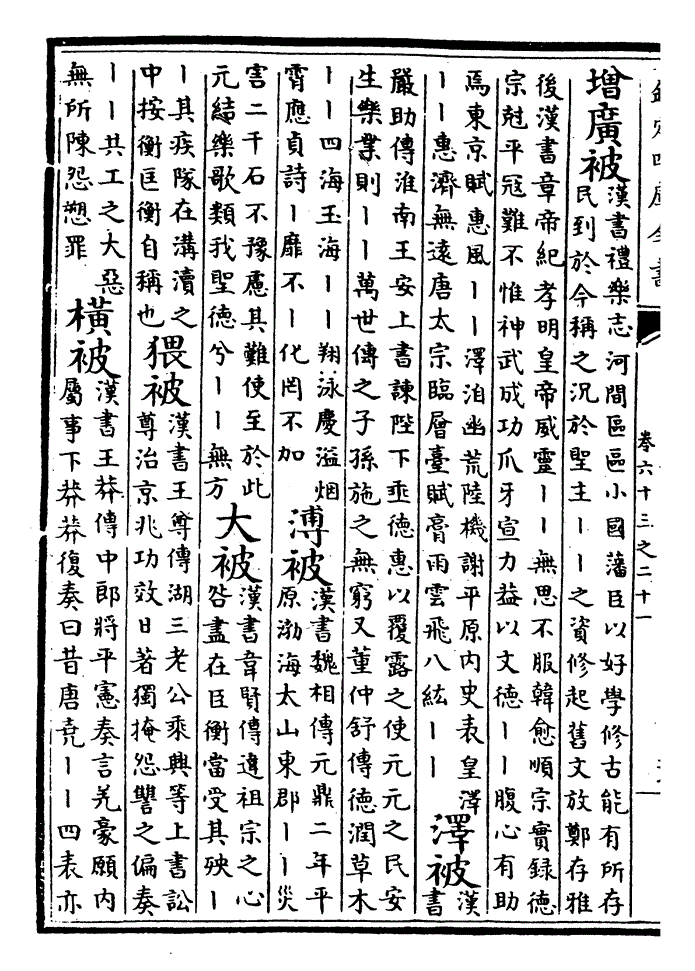 欽定四庫全書
卷六十三之二十一
增廣被
漢書禮樂志河間區區小國藩臣以好學修古能有所存
民到於今稱之況於聖主丨丨之資修起舊文放鄭存雅
後漢書章帝紀孝明皇帝威靈丨丨無思不服韓愈順宗實録德
宗尅平冦難不惟神武成功爪牙宣力益以文德丨丨腹心有助
焉東京賦惠風丨丨澤洎幽荒陸機謝平原内史表皇澤
丨丨惠濟無遠唐太宗臨層臺賦膏雨雲飛八紘丨丨
澤被
漢
書
嚴助傳淮南王安上書諫陛下垂德惠以覆露之使元元之民安
生樂業則丨丨萬世傳之子孫施之無窮又董仲舒傳德潤草木
丨丨四海玉海丨丨翔泳慶溢烟
霄應貞詩丨靡不丨化罔不加
溥被
漢書魏相傳元鼎二年平
原渤海太山東郡丨丨災
害二千石不豫慮其難使至於此
元結樂歌類我聖德兮丨丨無方
大被
漢書韋賢傳違祖宗之心
咎盡在臣衡當受其殃丨
丨其疾隊在溝瀆之
中按衡匡衡自稱也
猥被
漢書王尊傳湖三老公乘興等上書訟
尊治京兆功效日著獨掩怨讐之偏奏
丨丨共工之大惡
無所陳怨愬罪
橫被
漢書王莽傳中郎將平憲奏言羌豪願内
屬事下莽莽復奏曰昔唐堯丨丨四表亦